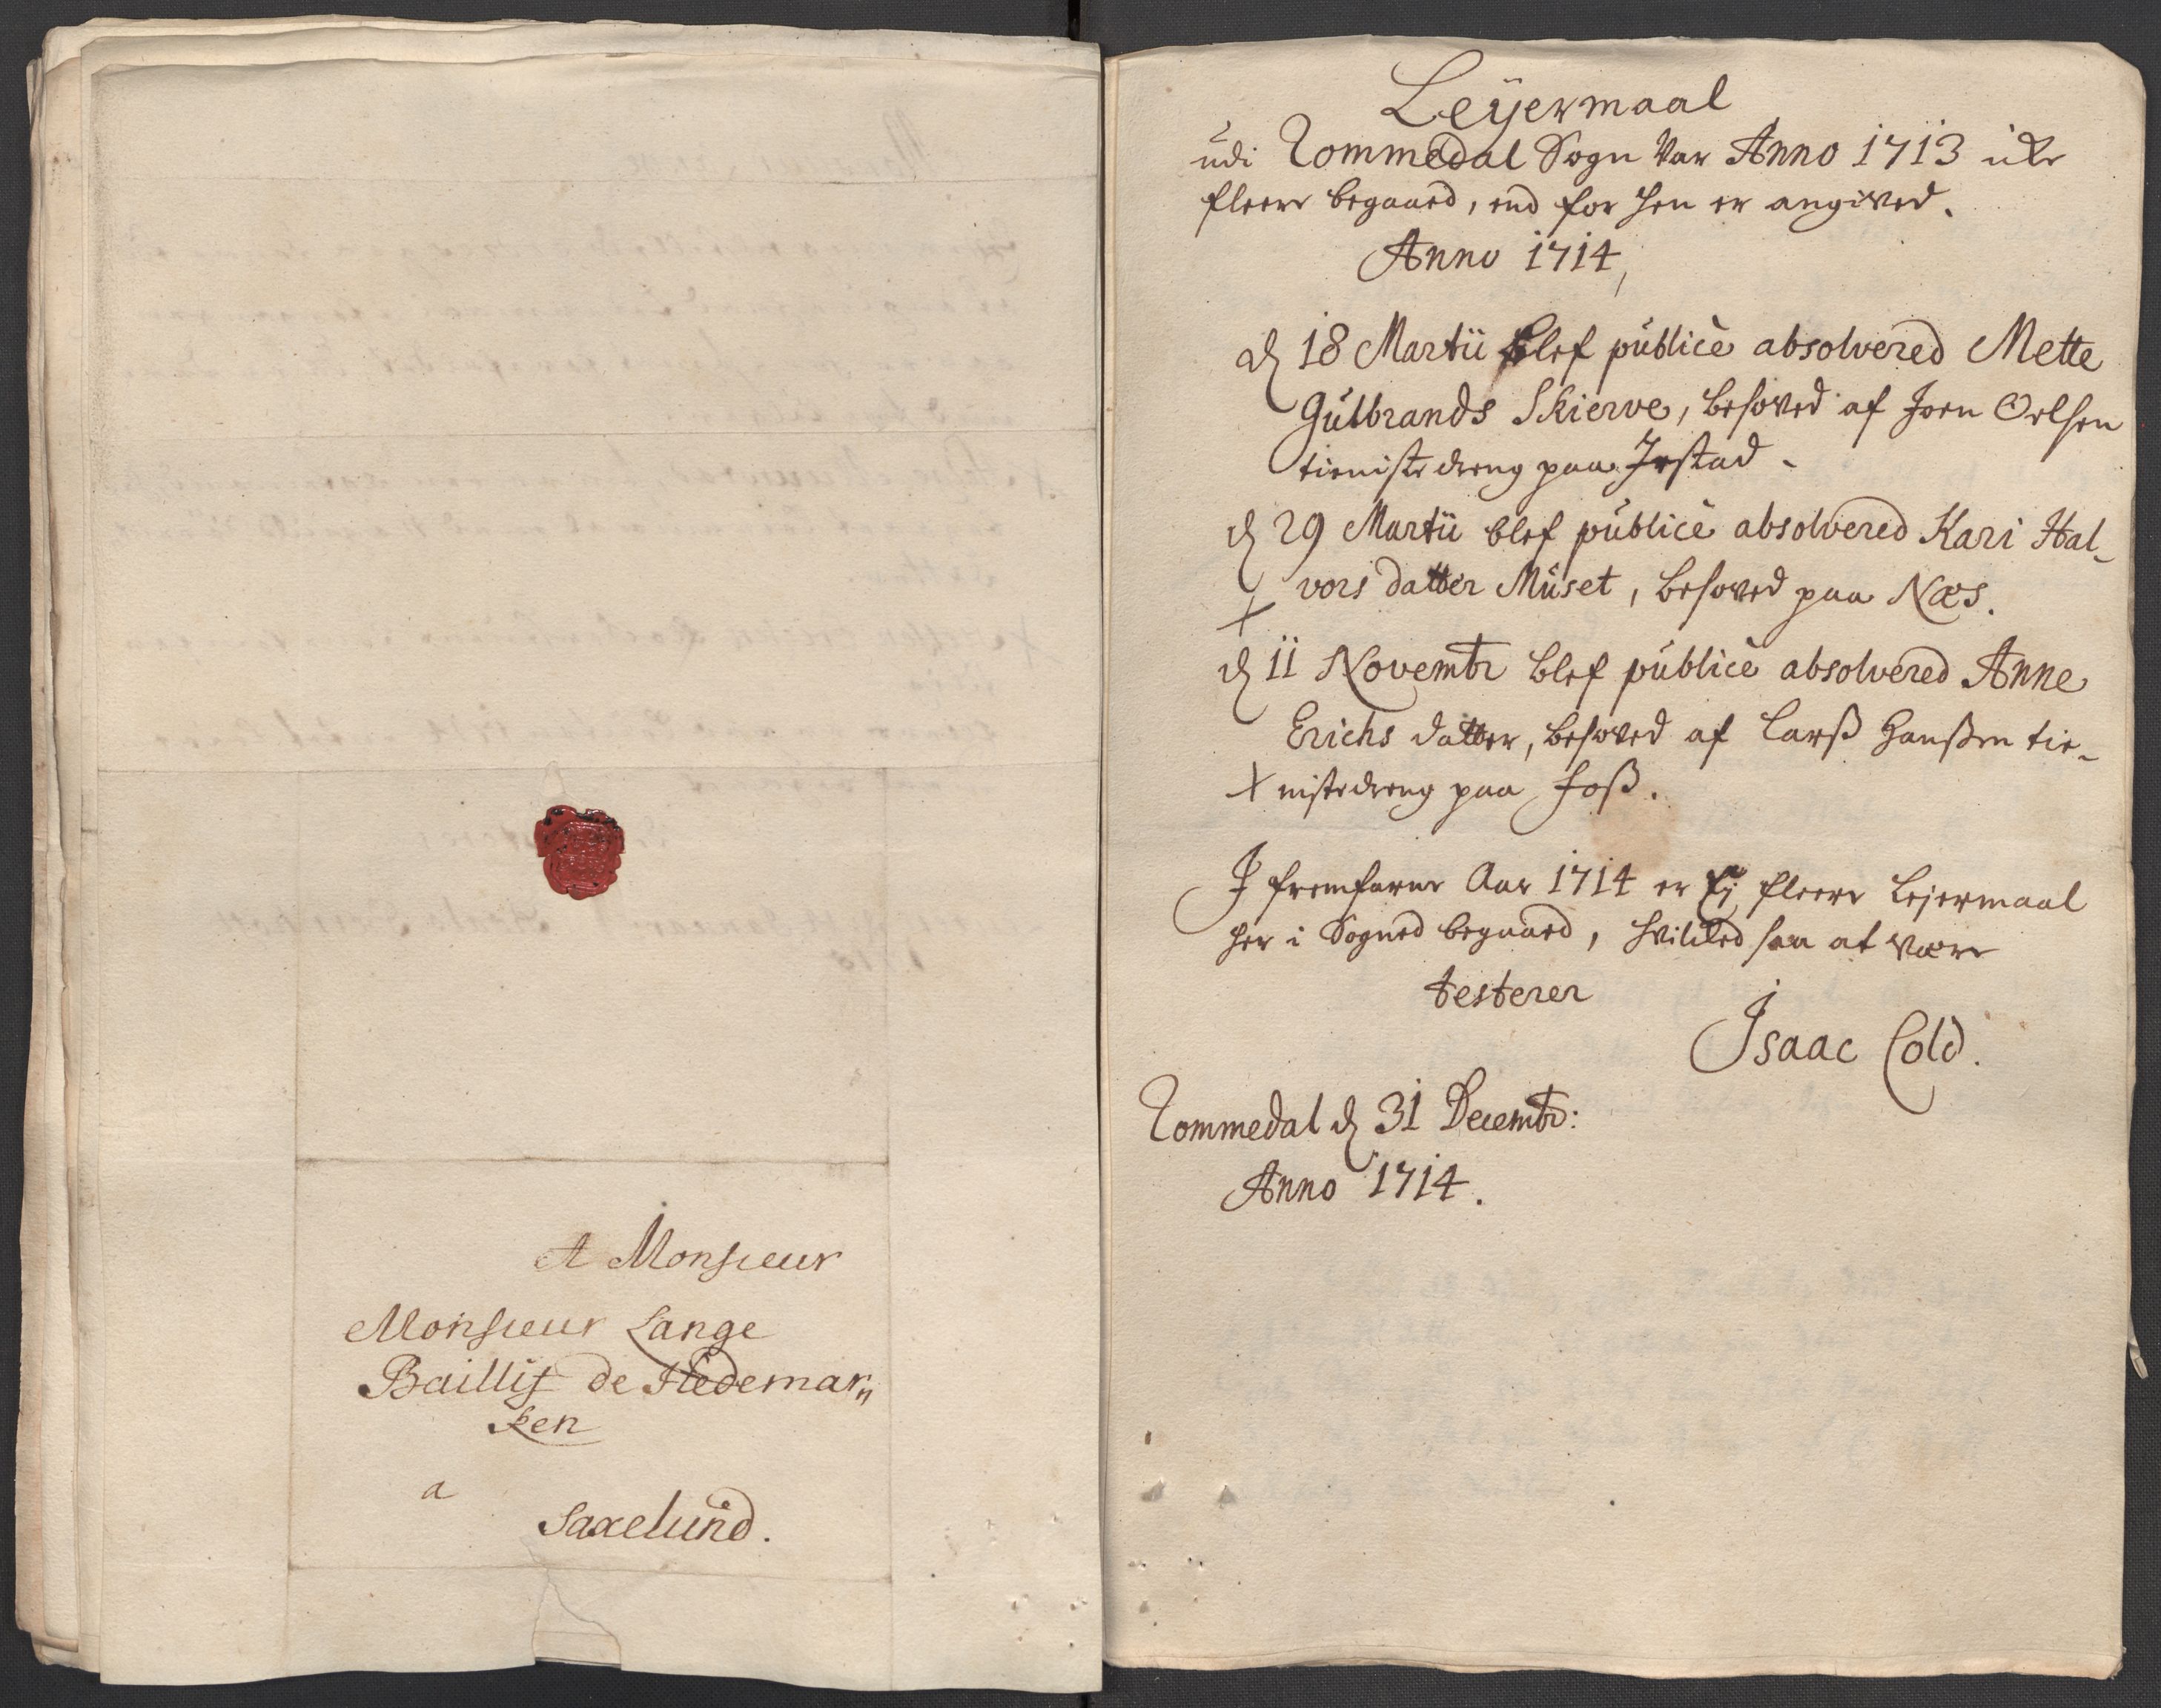 A Monsieur
Monsieur Lange
Baillif de Hedemar„
ken
a
Saxelund.
Leÿermaal
udi Rommedal Sogn var Anno 1713 icke
fleere begaaed, end for hen er angived.
Anno 1714,
d 18 Martii blef publicè absolvered Mette
Gulbrands Skierve, besoved af Joen Oelsen
tieniste dreng paa Jestad.
d 29 Martii blef publicè absolvered Kari Hal-
vors datter Müset, besoved paa Næs.
d 11 Novembr blef publicè absolvered Anne
Erichs datter, besoved af Larß Hanßen tie-
nistedreng paa Foß.
I fremfarne Aar 1714 er Ej fleere Lejermaal
her i Sogned begaaed, hvilked saa at være
testerer
Isaac Cold.
Rommedal d 31 Decembr:
Anno 1714.